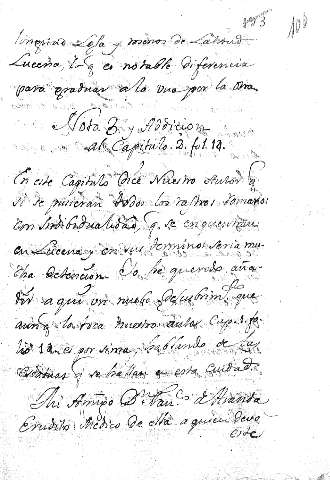 y menos de Latitud
Lucena, lo q es notable diferencia
para graduar a la una por la otra.
Nota 3 y Addicion
al Capitulo. 2. fol. 14.
En este Capitulo dice Nuestro Autor q
si se pusieran todos los rastros Romanos
con Indibidualidad, q se encuentran
en Lucena y en su termino seria mu
cha detencion. Yo he querido aña
dir aqui un nuebo descubrimto que
aunq lo toca nuestro autor Cap. 1. fo
lio 12 es por sima, hablando de las
estatuas q se hallan en esta ciudad.
Mi Amigo Dn Franco de Aranda
Erudito Medico de ella a quien devo
este